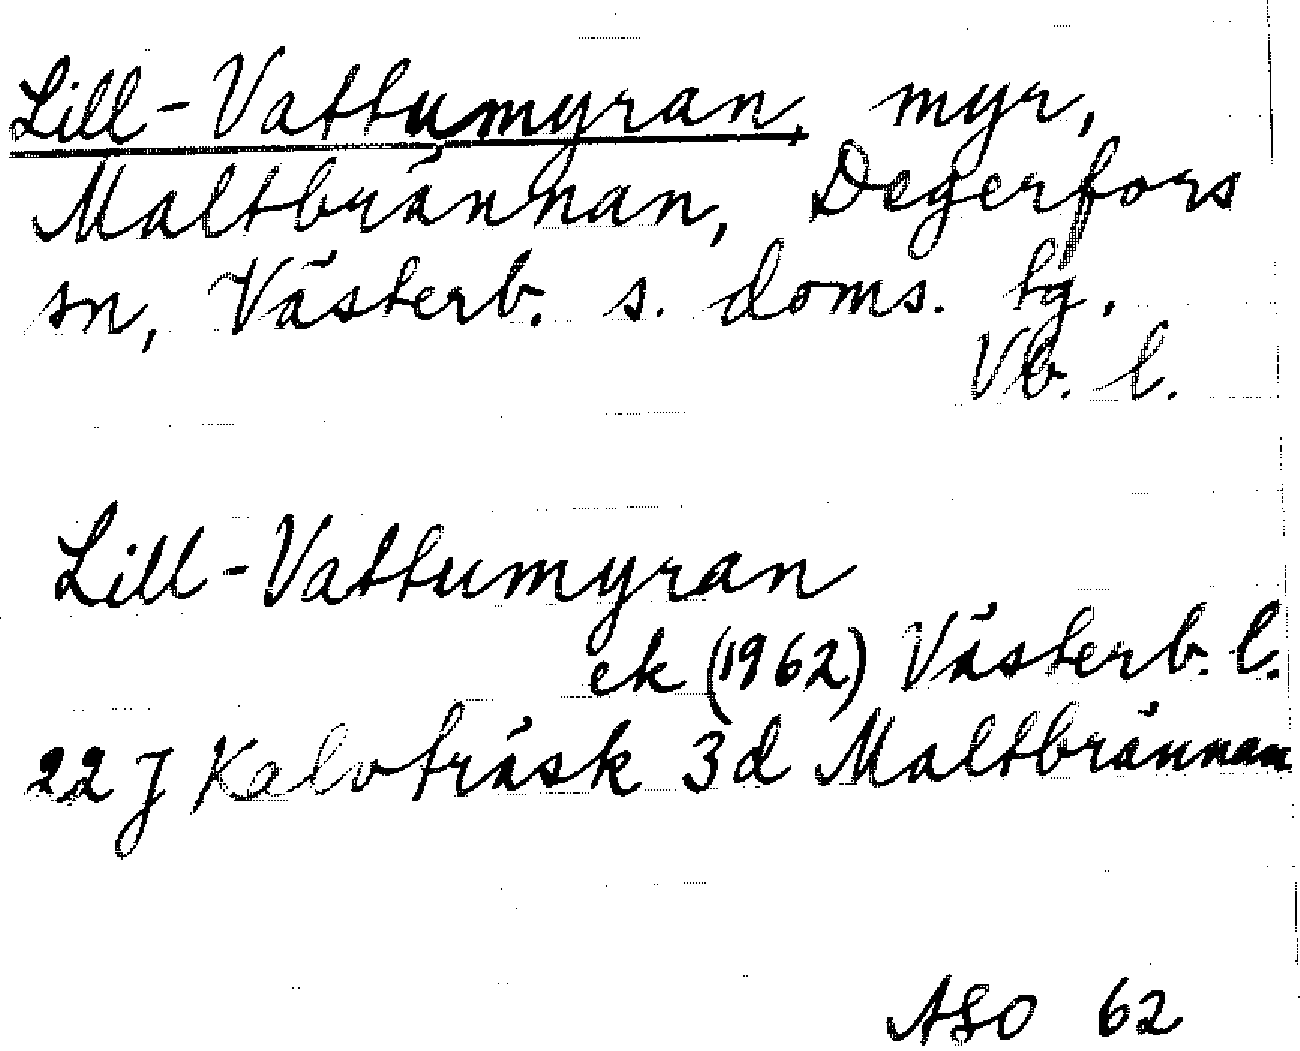 Lill-Vattumyran, myr,
Maltbrännan, Degerfors
sn, Västerb. s. doms. tg.
Vb. l.
Lill-Vattumyran
ek (1962) Västerb. l.
22 J Kalvträsk 3d Maltbrännan
ASO 62